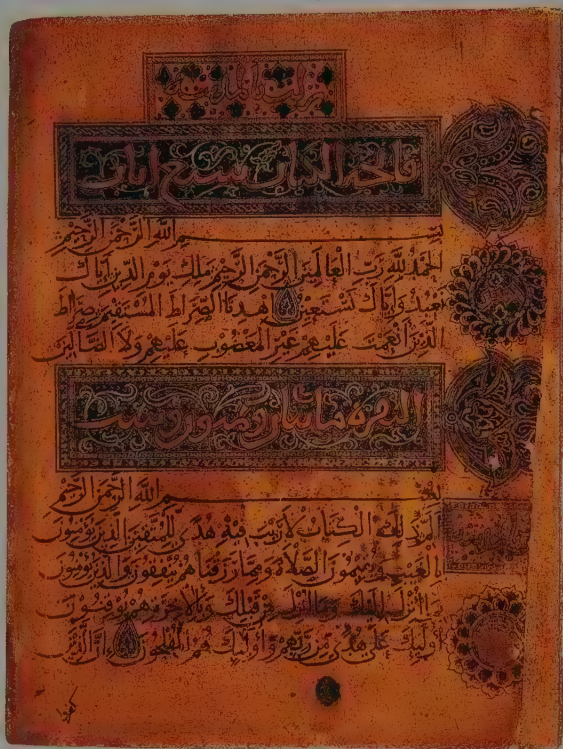 نزلت بالمدينة
فاتحة الكتاب سبع ايات
بِسْمِ اللهِ الرَّحْمنِ الرَّحِيمِ
الحَمْدُ للهِ رَبِّ الْعَالَمِينَ الرَّحْمنِ الرَّحِيمِ مَلِكِ يَوْمِ الدِّينِ اِيَّاكَ
نَعْبُدُ وَاِيَّاكَ نَسْتَعِينُ اهْدِنَا الصِّرَاطَ الْمُسْتَقِيمَ صِرَاطَ
الَّذِينَ اَنْعَمْتَ عَلَيْهِمْ غَيْرِ الْمَغْضُوبِ عَلَيْهِمْ وَلَا الضَّالِّينَ
البقرة مائتان وثمنون وست
بِسْمِ اللهِ الرَّحْمنِ الرَّحِيمِ
الم ذلِكَ الْكِتَابُ لَا رَيْبَ فِيهِ هُدًى لِلْمُتَّقِينَ الَّذِينَ يُؤْمِنُونَ
بِالْغَيْبِ وَيُقِيمُونَ الصَّلَاةَ وَمِمَّا رَزَقْنَاهُمْ يُنْفِقُونَ وَالَّذِينَ يُؤْمِنُونَ
بِمَا اُنْزِلَ اِلَيْكَ وَمَا اُنْزِلَ مِنْ قَبْلِكَ وَبِالْاخِرَةِ هُمْ يُوقِنُونَ
اُولئِكَ عَلَى هُدًى مِنْ رَبِّهِمْ وَاُولئِكَ هُمُ الْمُفْلِحُونَ اِنَّ الَّذِينَ